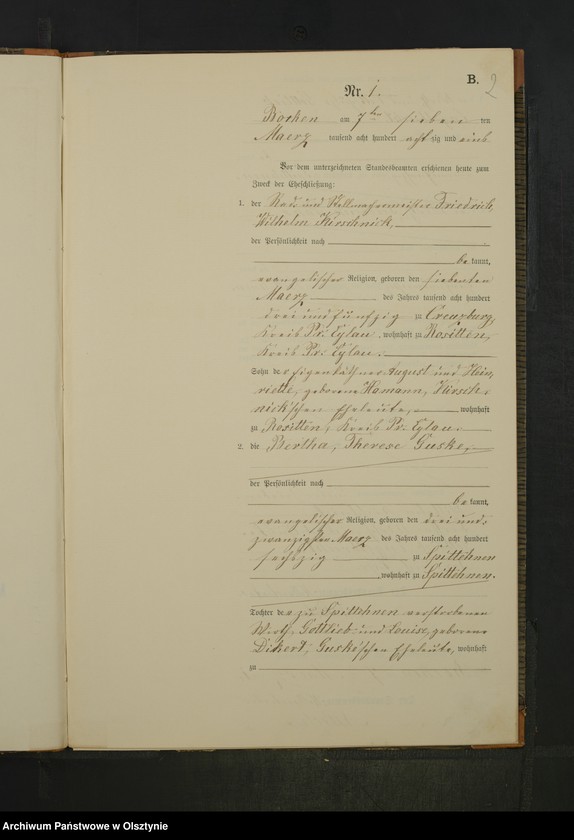 B.
2
Nr. 1.
Rochen am 7ten sieben ten
Maerz tausend acht hundert acht zig und eins
Vor dem unterzeichneten Standesbeamten erschienen heute zum
Zweck der Eheschließung:
1. der Rad- und Stellmachermeister Friedrich,
Wilhelm Kirschnick,
der Persönlichkeit nach
be kannt,
evangelischer Religion, geboren den siebenten
Maerz des Jahres tausend acht hundert
drei und funfzig zu Creuzburg,
Kreis Pr. Eylau, wohnhaft zu Rositten,
Kreis Pr. Eylau.
Sohn des Eigenkäthner August und Hen-
riette, geborene Hamann, Kirsch-
nickschen Eheleute, wohnhaft
zu Rositten, Kreis Pr. Eylau.
2. die Bertha, Therese Guske,
der Persönlichkeit nach
be kannt,
evangelischer Religion, geboren den drei und
zwanzigsten Maerz des Jahres tausend acht hundert
sechszig zu Spittehnen
, wohnhaft zu Spittehnen.
Tochter der zu Spittehnen verstorbenen
Wirth Gottlieb und Louise, geborene
Dikert, Guskeschen Eheleute, wohnhaft
zu
Archiwum Państwowe w Olsztynie